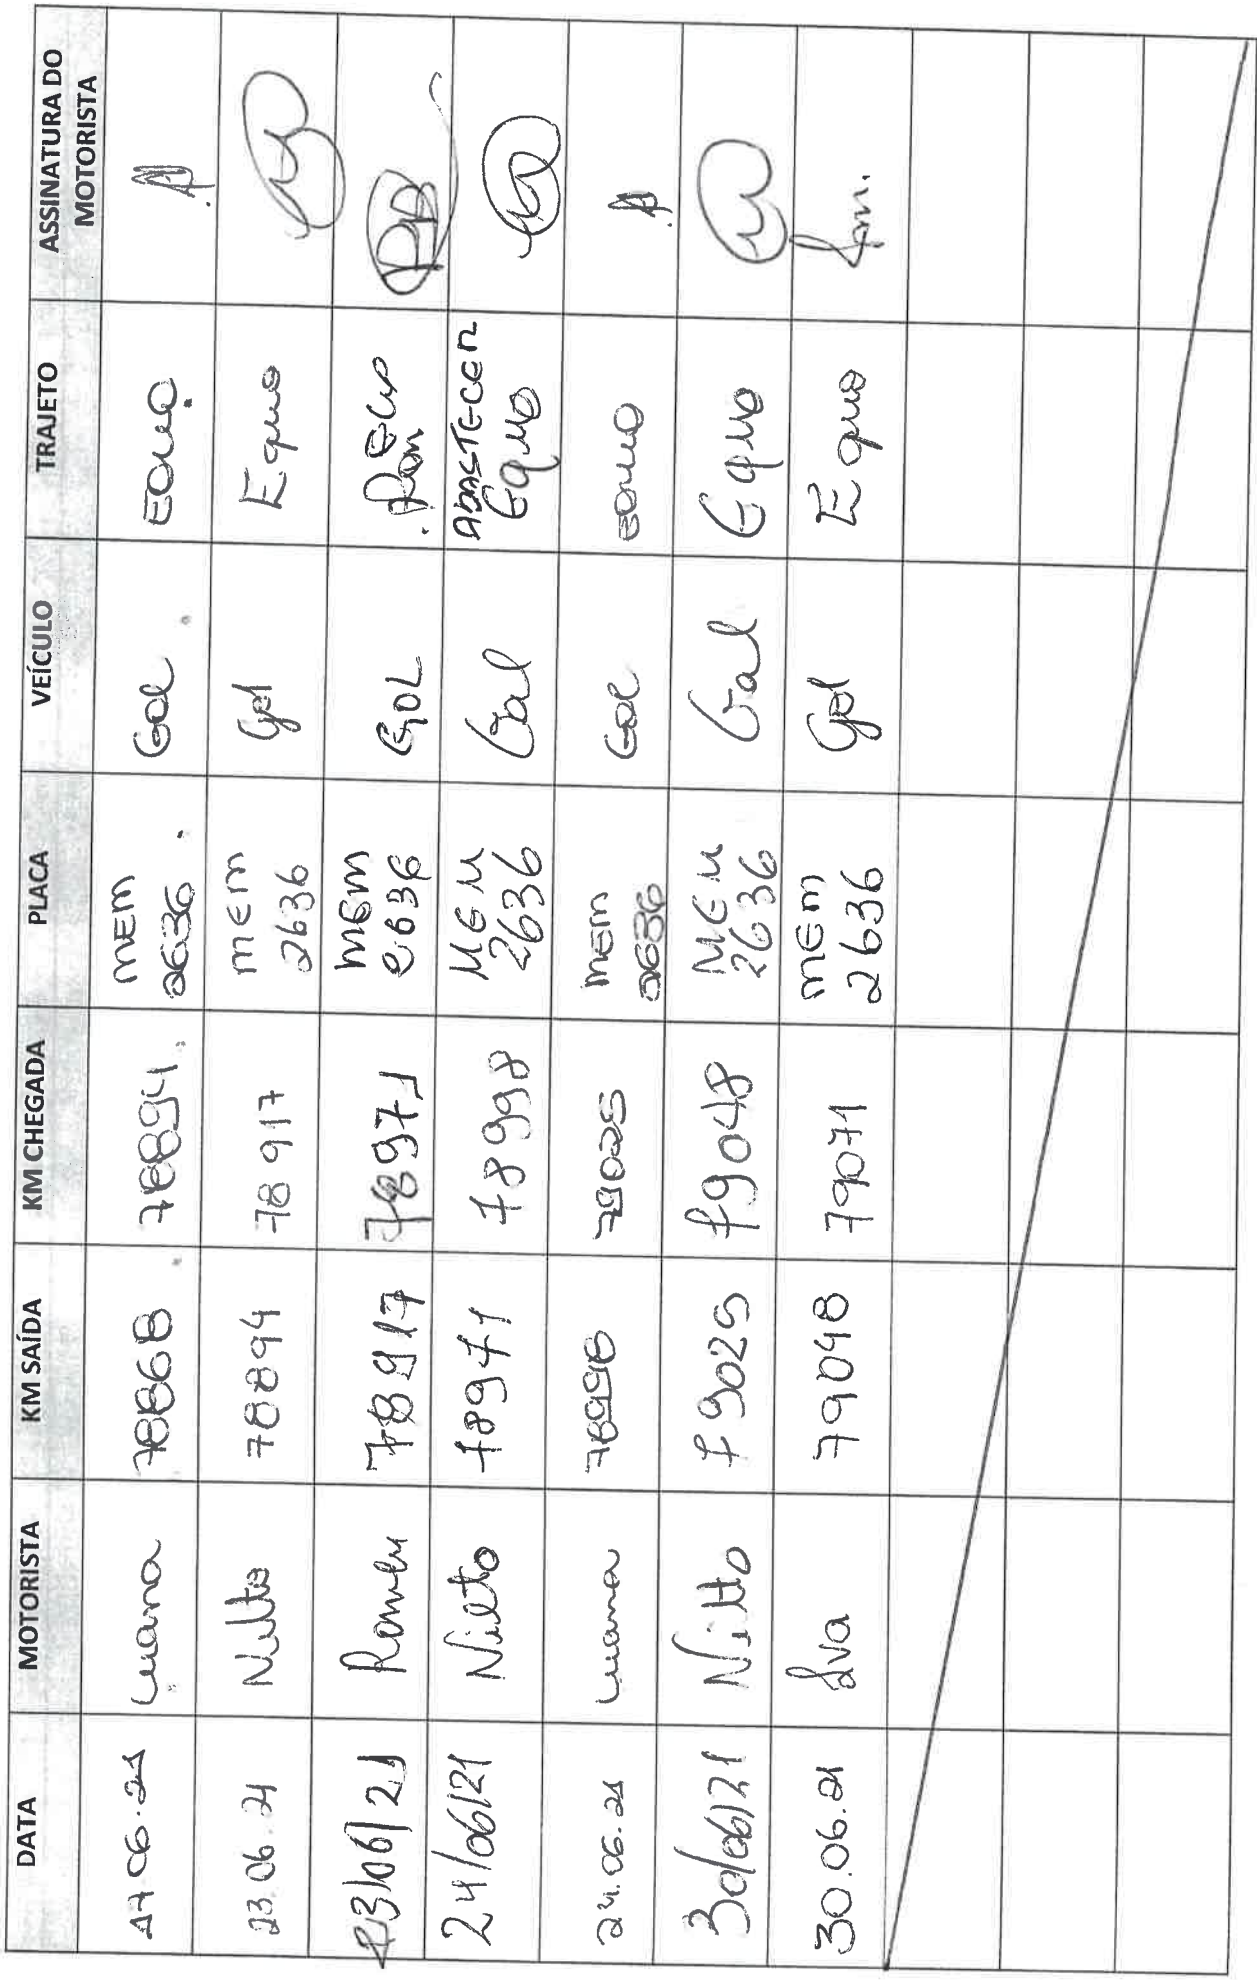 DATA MOTORISTA KM SAÍDA KM CHEGADA PLACA VEÍCULO TRAJETO ASSINATURA DO MOTORISTA
17.06.21 Luana 78868 78894 MEM 2636 Gol EQUO
23.06.21 Nilto 78894 78917 MEM 2636 Gol Equo
23/06/21 78917 78971 MEM 2636 GOL
24/06/21 Nilto 78971 78998 MEM 2636 Gol ABASTECER Equo
24.06.21 Luana 78998 79025 MEM 2636 Gol EQUO
30/06/21 Nilto 79025 79048 MEM 2636 Gol Equo
30.06.21 Iva 79048 79071 MEM 2636 Gol Equo